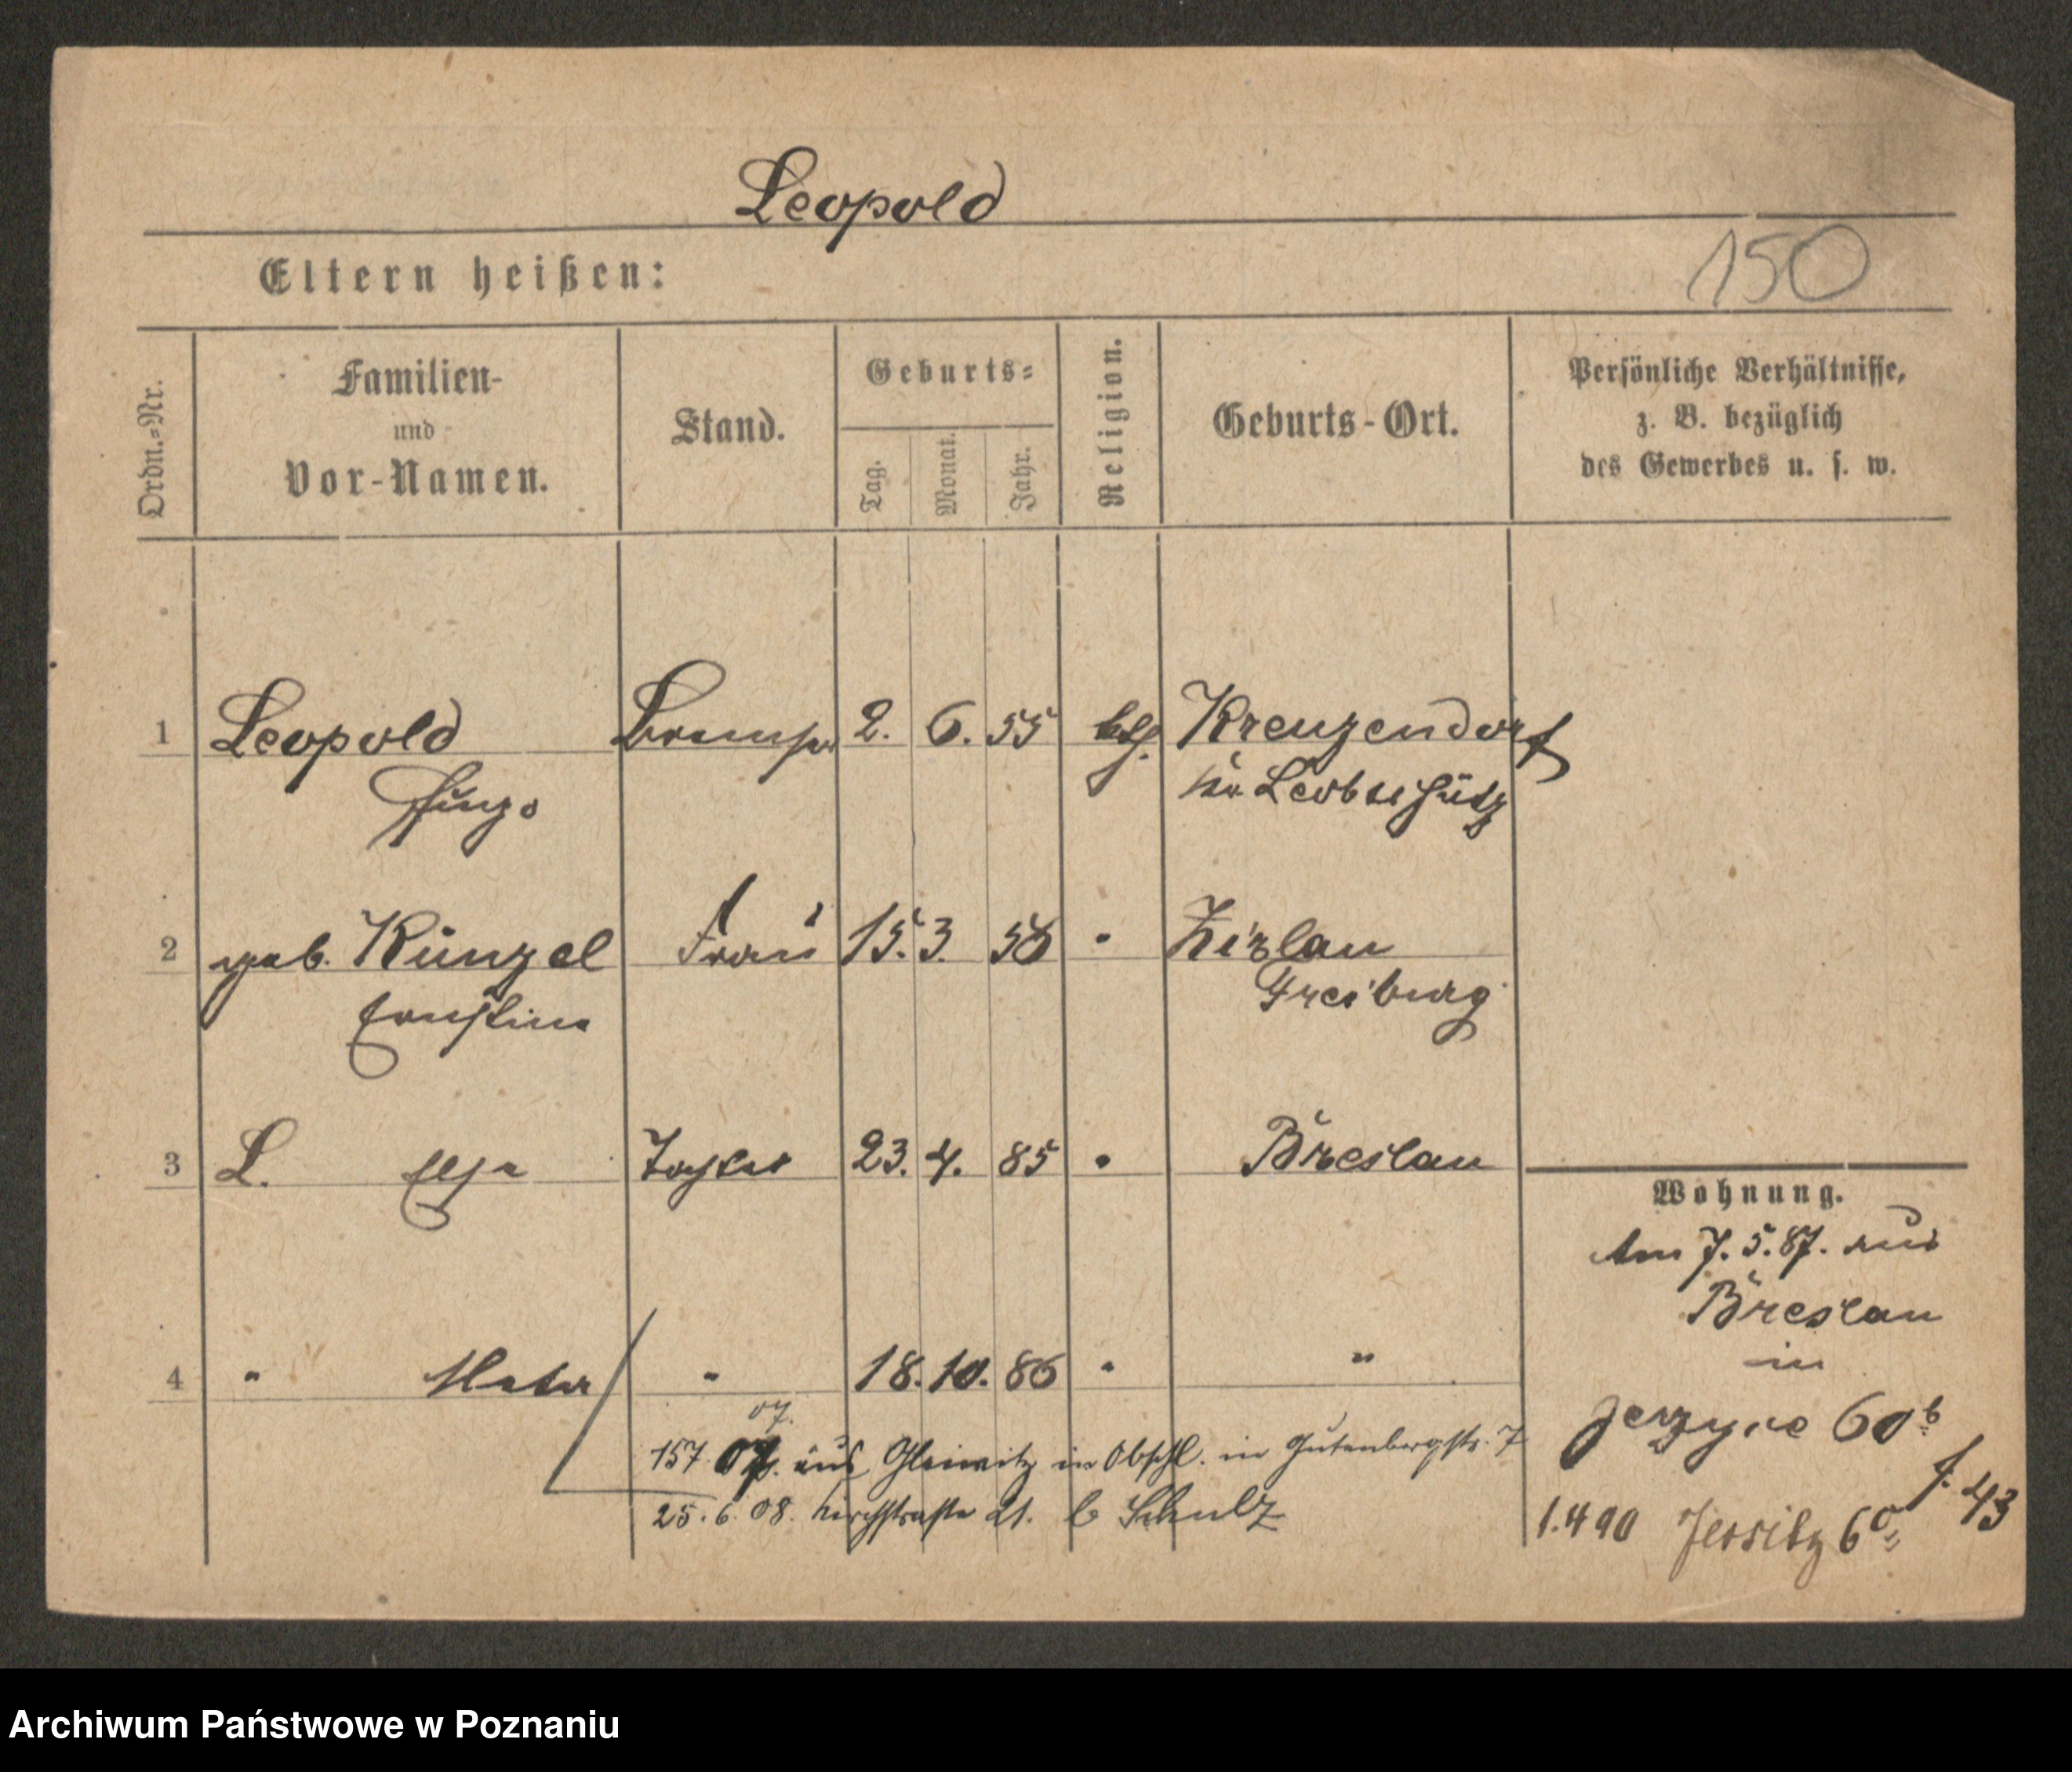 Leopold
Eltern heißen:
150
Ordn.=Nr.
Familien-
und
Vor-Namen.
Stand.
Geburts=
Tag.
Monat.
Jahr.
Religion.
Geburts-Ort.
Persönliche Verhältnisse,
z. B. bezüglich
des Gewerbes u. s. w.
1 Leopold Bremser 2. 6. 55 kth. Kreuzendorf
Hugo Kr. Leobschütz
2 geb. Künzel Frau 15. 3. 58 " Zirlau
Ernstine Freiburg
3 L. Else Tochter 23. 4. 85 " Breslau
4 " " 18. 10. 86 " "
Wohnung.
Am 7. 5. 87. aus
Breslau
in
Jerzyce 60b
J. 43
1.4 90 Jersitz 60
07.
157. 07. aus Gleiwitz in Obschl. in Gutenbergstr. 7
25. 6. 08. Kirchstraße 21. b Schulz
Archiwum Państwowe w Poznaniu